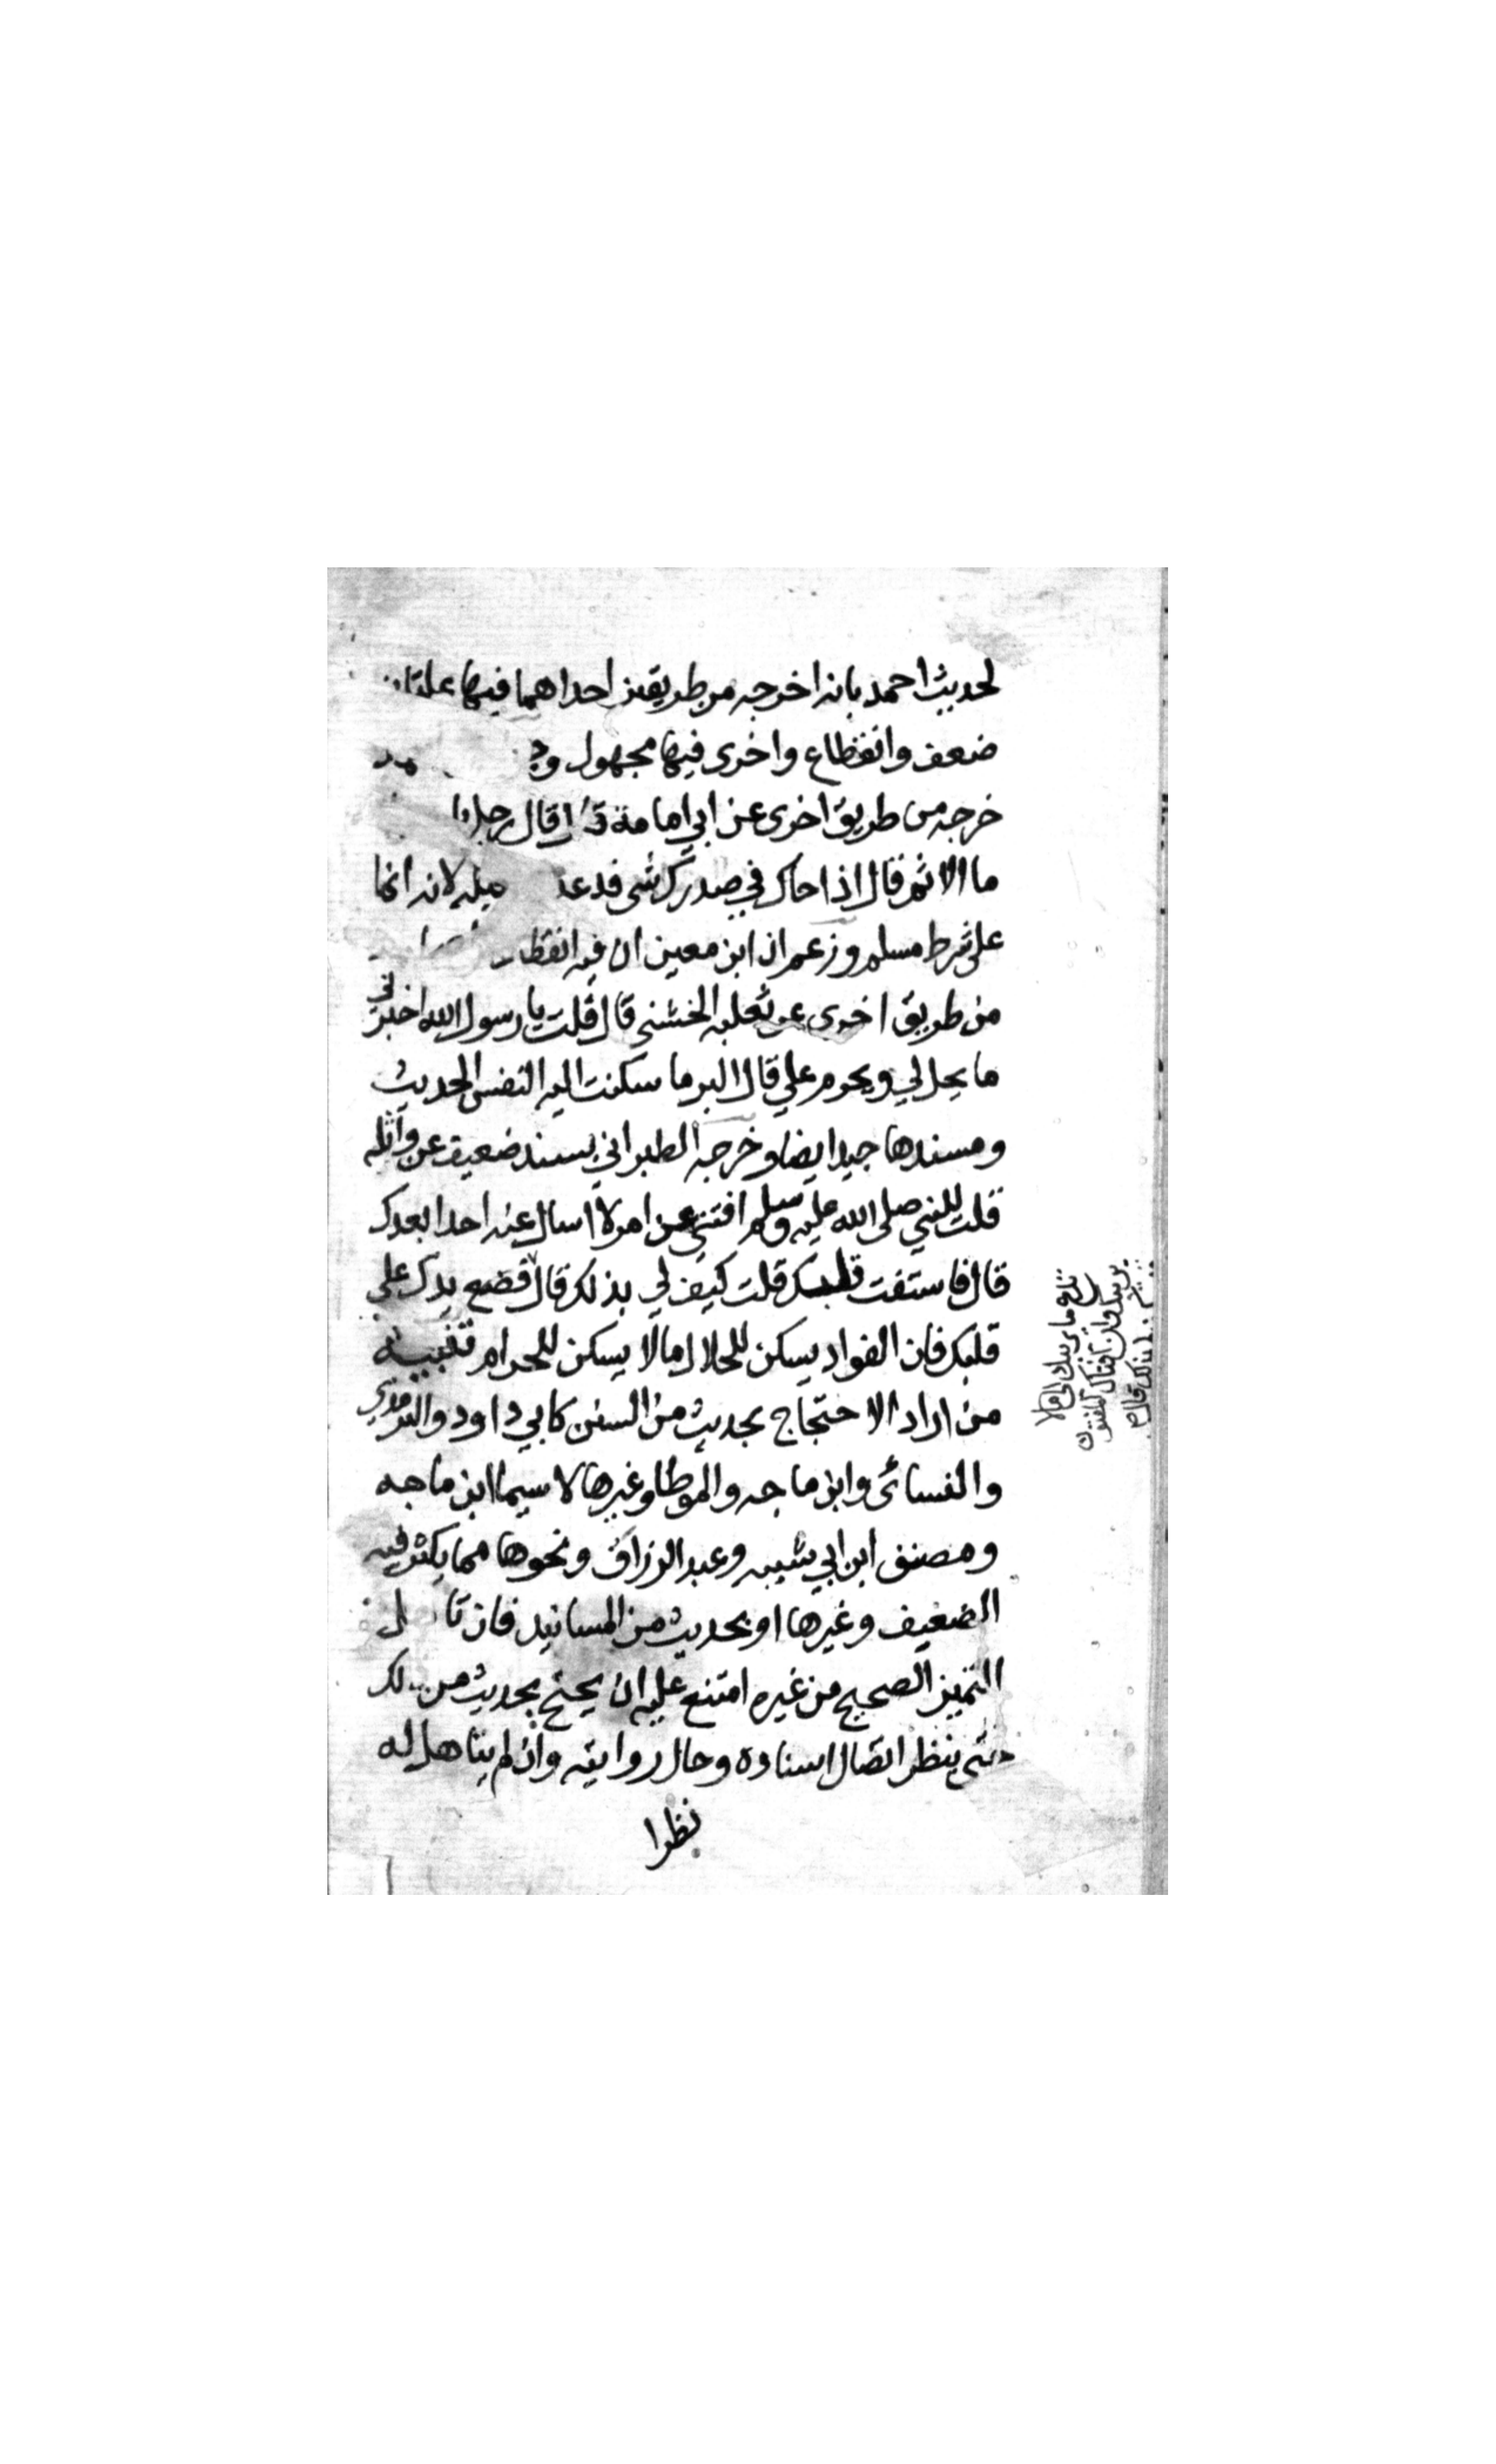 لحديث احمد بانه اخرجه من طريقين احداهما فيها علتان
ضعف وانقطاع واخرى فيها مجهول
خرجه من طريق اخرى عن ابي امامة قال رجل
ما الاثم قال اذا حاك في صدرك شي فدعه لانه انما
على شرط مسلم وزعم ان ابن معين ان فيه
من طريق اخرى عن ثعلبه الخشنى قال قلت يا رسول الله اخبرني
ما يحل لي ويحرم علي قال البر ما سكنت اليه النفس الحديث
ومسندها جيد ايضا وخرجه الطبراني بسند ضعيف عن واثله
قلت للنبي صلى الله عليه وسلم افتني عن امر لا اسال عنه احدا بعدك
قال فاستفت قلبك قلت كيف لي بذلك قال فضع يدك على
قلبك فان الفواد يسكن للحلال ما لا يسكن للحرام تنبيه
من اراد الاحتجاج بحديث من السنن كابي داود والترمذي
والنسائى وابن ماجه والموطا وغيرها لا سيما ابن ماجه
ومصنف ابن ابي شيبه وعبد الرزاق ونحوها مما يكثر فيه
الضعيف وغيرها او بحديث من المسانيد فان
التميز الصحيح من غيره امتنع عليه ان يحتج بحديث من
حتى ينظر اتصال اسناده وحال رواته وان لم يتاهل له
نظرا
تدع ما يريبك الى ما لا
يريبك وان افتاك المفتون
بذلك قال